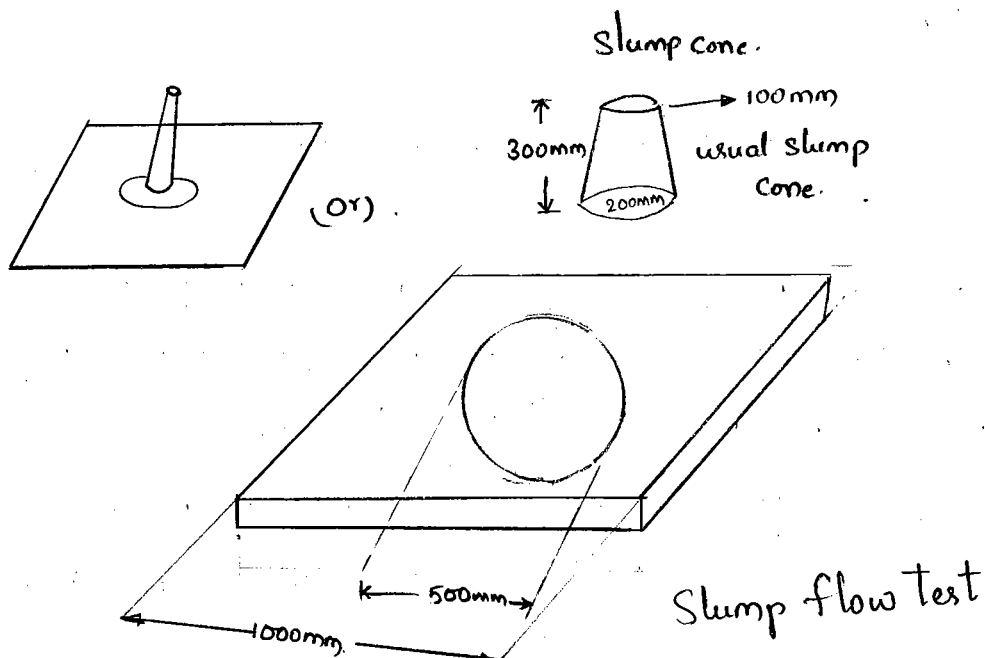 Slump cone.
100mm
300mm
usual slump
cone.
200mm
(Or).
500mm
1000mm
Slump flow Test